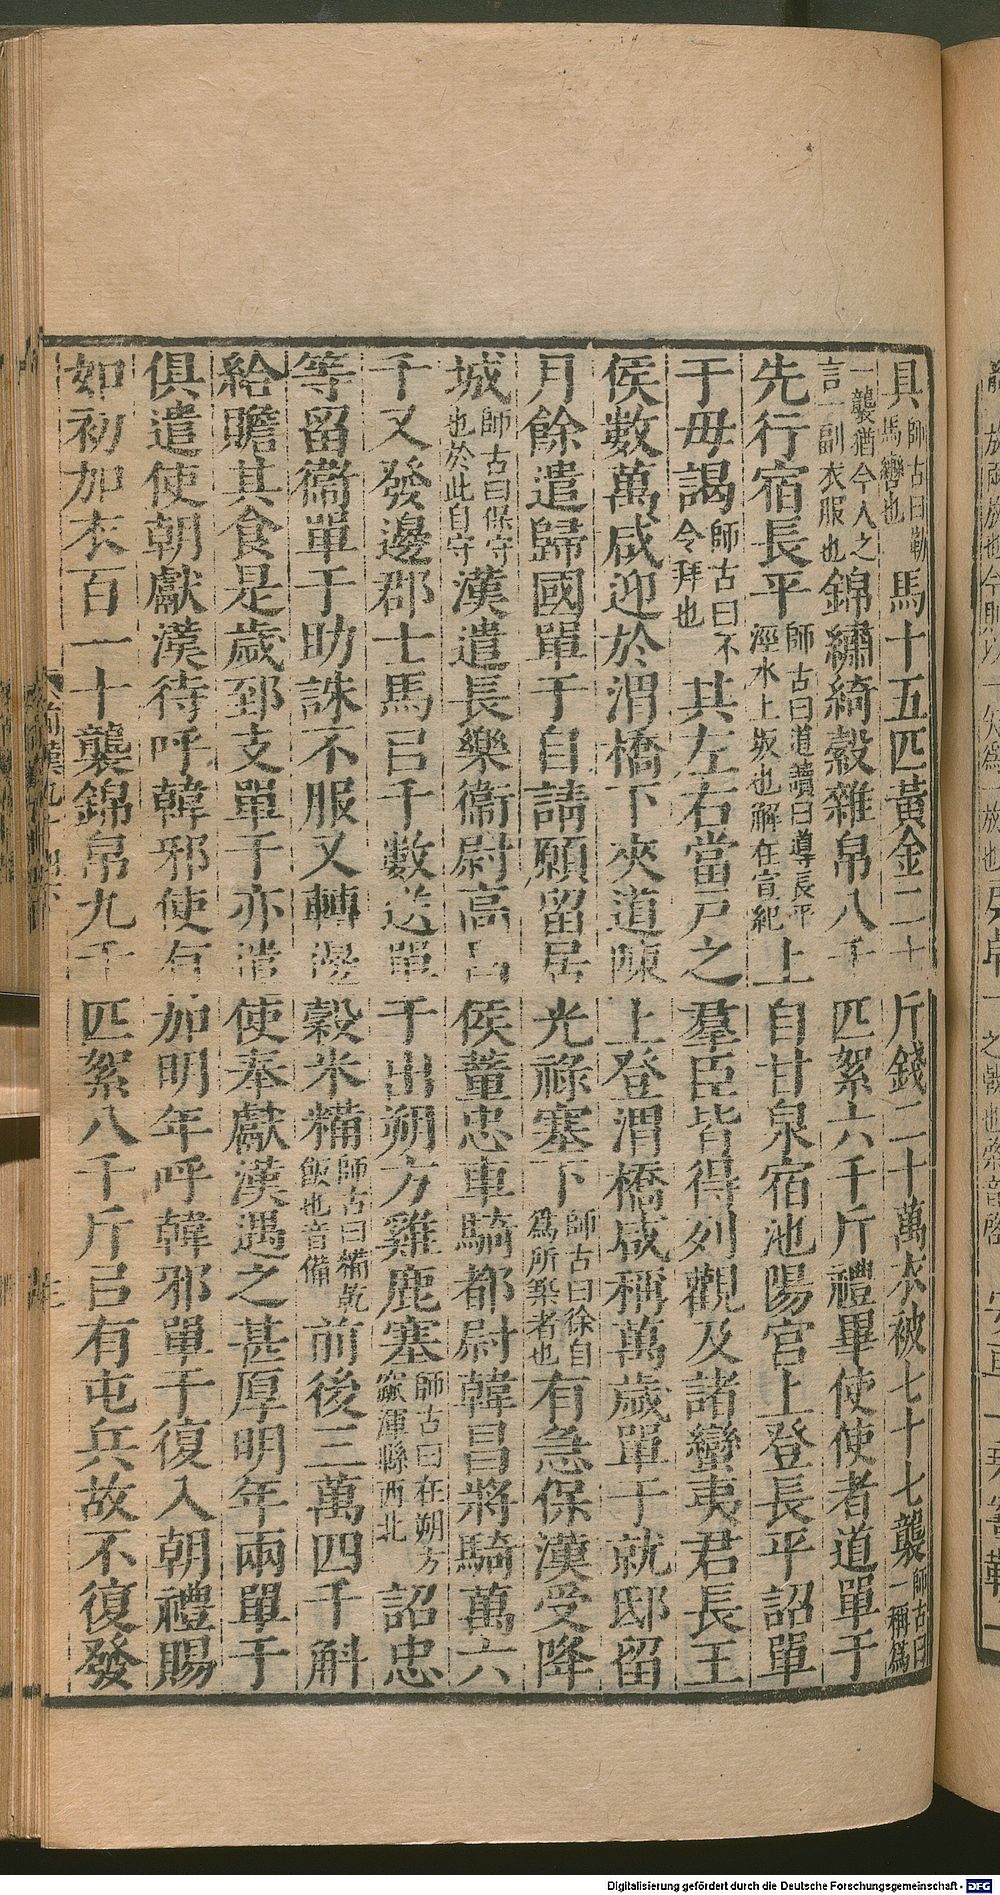 具師古曰勒馬轡也馬十五匹黃金二十斤錢二十萬衣被七十七襲師古曰一稱爲
一襲猶今人之言一副衣服也錦繡綺縠雜帛八千匹絮六千斤禮畢使使者道單于
先行宿長平師古曰道讀曰導長平涇水上坂也解在宣紀上自甘泉宿池陽宮上登長平詔單
于毋謁師古曰不令拜也其左右當戶之羣臣皆得列觀及諸蠻夷君長王
侯數萬咸迎於渭橋下夾道陳上登渭橋咸稱萬歲單于就邸留
月餘遣歸國單于自請願留居光祿塞下師古曰徐自爲所築者也有急保漢受降
城師古曰保守也於此自守漢遣長樂衞尉高昌侯董忠車騎都尉韓昌將騎萬六
千又發邊郡士馬㠯千數送單于出朔方雞鹿塞師古曰在朔方窳渾縣西北詔忠
等留衞單于助誅不服又轉邊穀米糒師古曰糒乾飯也音備前後三萬四千斛
給贍其食是歲郅支單于亦遣使奉獻漢遇之甚厚明年兩單于
俱遣使朝獻漢待呼韓邪使有加明年呼韓邪單于復入朝禮賜
如初加衣百一十襲錦帛九千匹絮八千斤㠯有屯兵故不復發
Digitalisierung gefördert durch die Deutsche Forschungsgemeinschaft - DFG